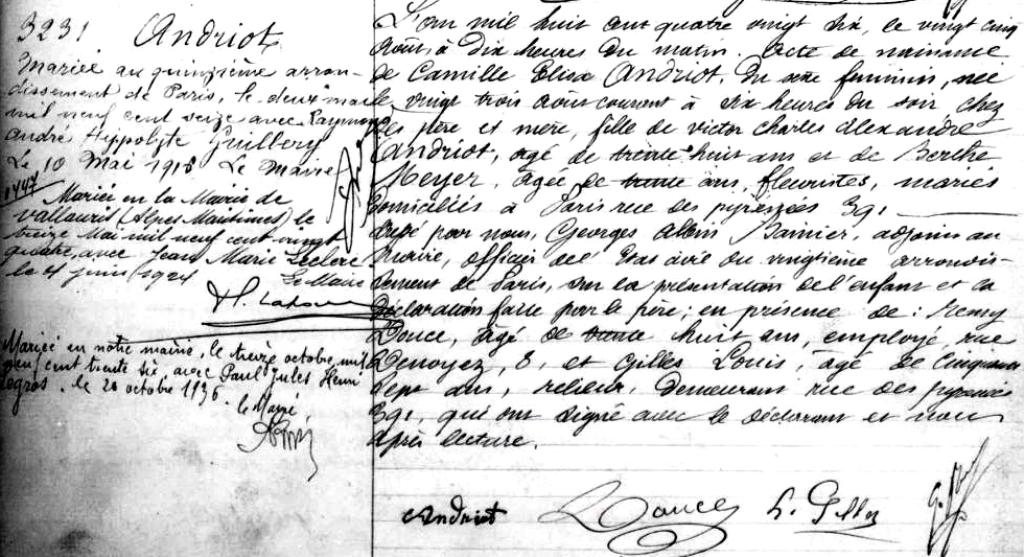 3231 Andriot
Mariée au quinzième arron-
dissement de Paris, le deux mai
mil neuf cent seize avec Raymond
André Hyppolyte Guillery
Le 10 Mai 1916 Le Maire
1447
Mariée en la Mairie de
Vallauris (Alpes Maritimes) le
treize Mai mil neuf cent vingt
quatre, avec Jean Marie Leclerc
le 4 juin 1924
Le Maire
Mariée en notre mairie, le treize octobre mil
neuf cent trente six, avec Paul Jules Henri
Legros. le 20 octobre 1936.
le Maire,
L'an mil huit cent quatre vingt six, le vingt cinq
Août, à dix heures du matin. Acte de naissance
de Camille Elisa Andriot, du sexe féminin, née
le vingt trois août courant à six heures du soir chez
ses père et mère, fille de Victor Charles Alexandre
Andriot, âgé de trente huit ans et de Berthe
Meyer, âgée de trente ans, fleuristes, mariés
domiciliés à Paris rue des Pyrénées 391
Dressé par nous, Georges Albin Banier, adjoint au
Maire, officier de l'Etat civil du vingtième arrondis-
sement de Paris, sur la présentation de l'enfant et la
déclaration faite par le père; en présence de: Remy
Douce, âgé de trente huit ans, employé, rue
Denoyez, 8, et Gilles Louis, âgé de cinquante
sept ans, relieur, demeurant rue des Pyrénées
391, qui ont signé avec le déclarant et nous
après lecture.
Andriot Douce L. Gilles